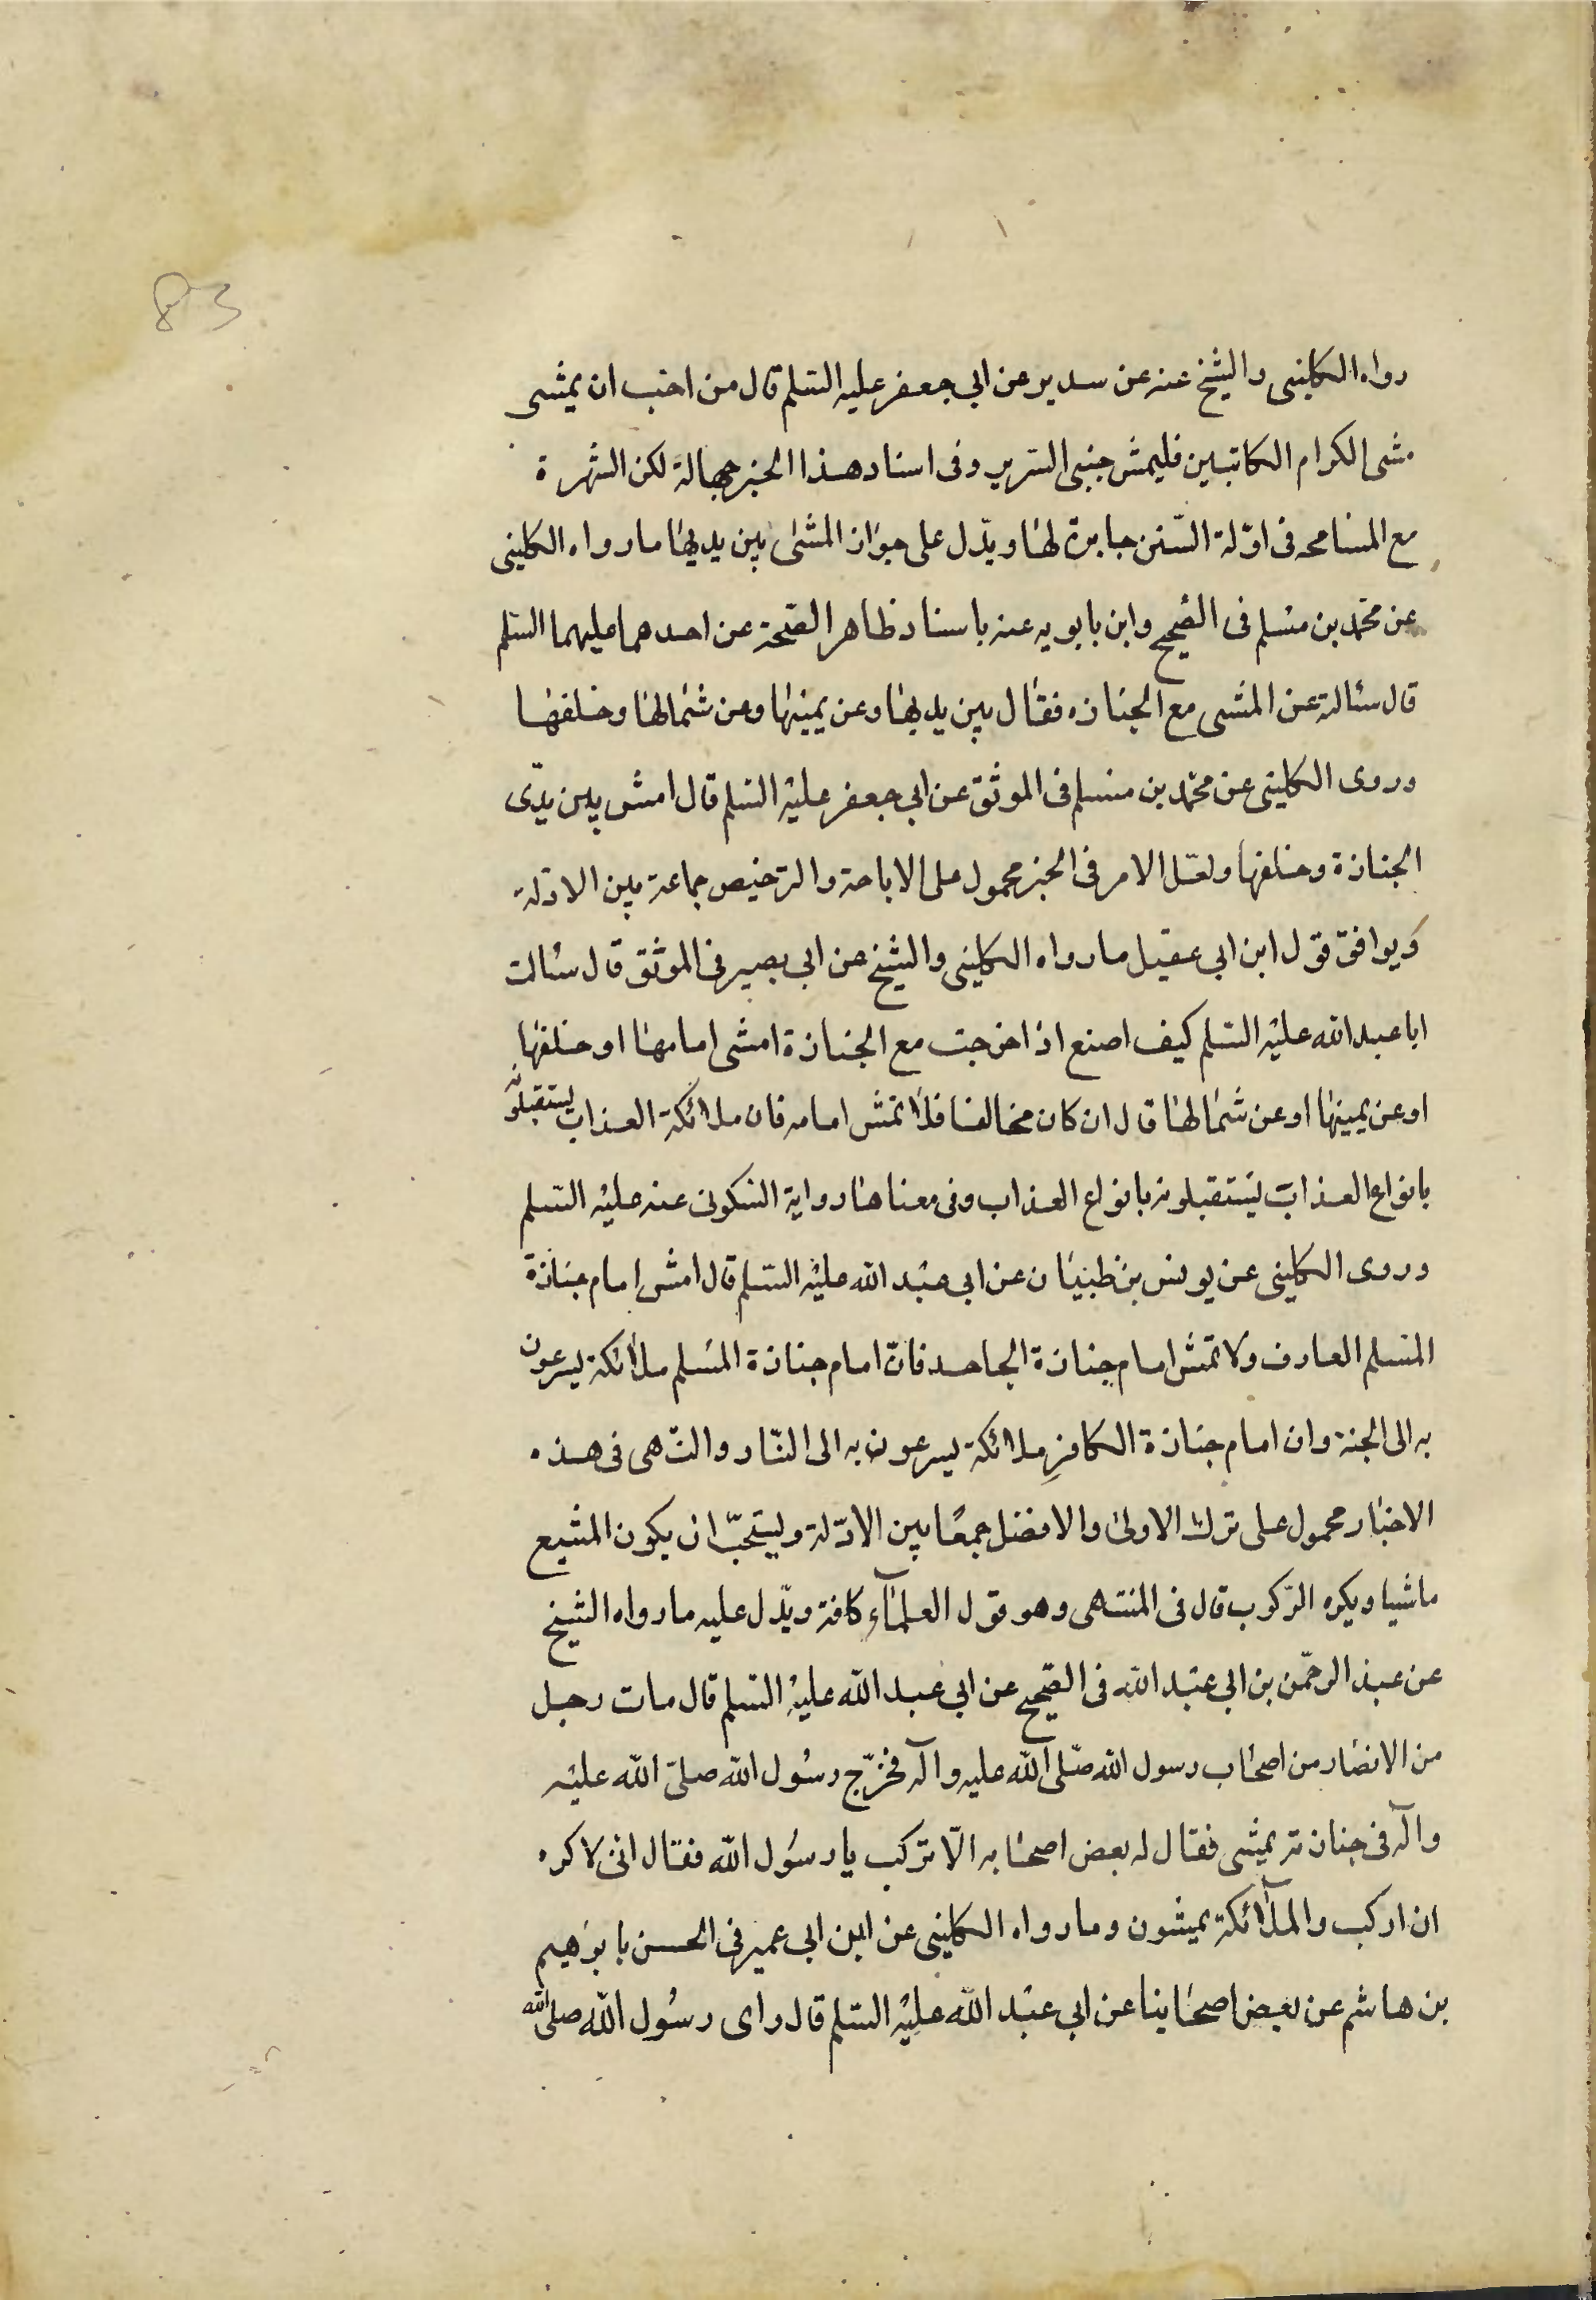 83
رواه الكلينى والشيخ عنه عن سدير عن ابي جعفر عليه السّلم قال من احبّ ان يمشى
مشى الكرام الكاتبين فليمش جنبى السّرير وفى اسناد هذا الخبر جهالة لكن الشهرة
مع المسامحه فى ادّلة السّنن جابرة لها ويدّل على جواز المشى بين يديها ما رواه الكلينى
عن محمّد بن مسلم فى الصّحيح وابن بابويه عنه باسناد ظاهر الصّحة عن احدهما عليهما السّلم
قال سئالته عن المشى مع الجنازه فقال بين يديها وعن يمينها وعن شمالها وخلفها
وروى الكلينى عن محمّد بن مسلم فى الموثق عن ابي جعفر عليه السّلم قال امش بين يدّى
الجنازة وخلفها ولعّل الامر فى الخبر محمول على الاباحة والترخيص جماعة بين الادّلة
ويوافق قول ابن ابي عقيل ما رواه الكلينى والشيخ عن ابي بصير فى الموثق قال سئالت
ابا عبد الله عليه السّلم كيف اصنع اذا خرجت مع الجنازة امشى امامها او خلفها
او عن يمينها او عن شمالها قال ان كان مخالفا فلا تمش امامه فان ملائكة العذاب يستقبلونه
بانواع العذاب يستقبلونه بانواع العذاب وفى معناها رواية السّكونى عنه عليه السّلم
وروى الكلينى عن يونس بن ظبيان عن ابي عبد الله عليه السّلم قال امش امام جنازة
المسلم العارف ولا تمش امام جنازة الجاحد فانّ امام جنازة المسلم ملائكة يسرعون
به الى الجنة وان امام جنازة الكافر ملائكة يسرعون به الى النّار والنّهى فى هذه
الاخبار محمول على ترك الاولى والافضل جمعًا بين الادّلة ويستحبّ ان يكون المشيع
ماشيا ويكره الرّكوب قال فى المنتهى وهو قول العلمآء كافة ويدّل عليه ما رواه الشيخ
عن عبد الرحمّن بن ابي عبد الله فى الصّحيح عن ابي عبد الله عليه السّلم قال مات رجل
من الانصار من اصحاب رسول الله صلّى الله عليه وآله فخرّج رسول الله صلىّ الله عليه
وآله فى جنازته يمشى فقال له بعض اصحابه الّا تركب يا رسول الله فقال انى لاكره
ان اركب والملآئكة يمشون وما رواه الكلينى عن ابن ابي عمير فى الحسن بابرهيم
بن هاشم عن بعض اصحابنا عن ابي عبد الله عليه السّلم قال راى رسول الله صلى الله